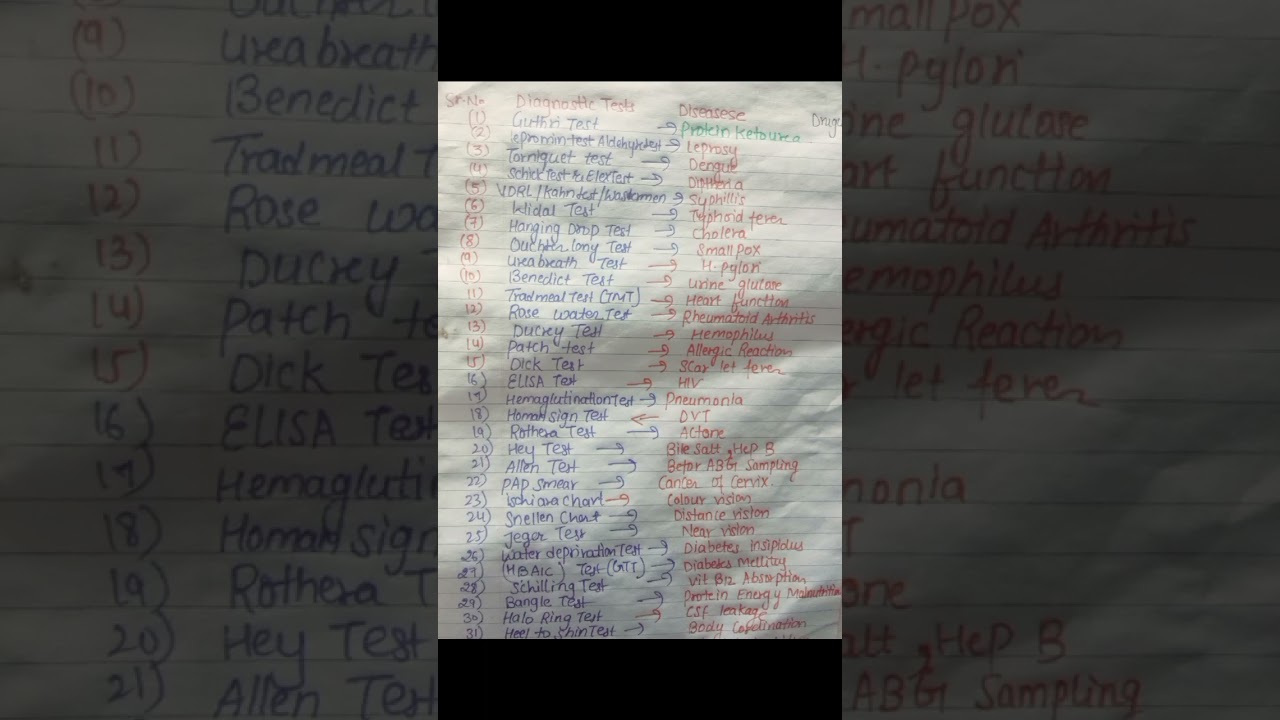 Sr.No Diagnostic Tests Diseasese Drug
(1) Guthri Test → Protein Ketourea
(2) leprominTest Aldehydetest → Leprosy
(3) Torniquet test → Dengue
(4) Schick Test & Elex Test → Diptheria
(5) VDRL/Kahn test/Wasserman → Syphillis
(6) Widal Test → Typhoid fever
(7) Hanging Drop Test → Cholera
(8) Ouchterlony Test → Small pox
(9) Ureabreath Test → H. pylori
(10) Benedict Test → urine glutose
11) Tradmeal Test (TMT) → Heart function
12) Rose water Test → Rheumatoid Arthritis
13) Ducrey Test → Hemophilus
14) Patch test → Allergic Reaction
15) Dick Test → Scar let fever
16) ELISA Test → HIV
17) Hemaglutination Test → Pneumonia
18) Homan sign Test ← DVT
19) Rothera Test → Actone
20) Hey Test → Bile Salt, Hep B
21) Allen Test → Befor ABG Sampling
22) PAP Smear → Cancer of Cervix.
23) ischiara chart → Colour vision
24) Snellen Chart → Distance vision
25) Jeger Test → Near vision
26) Water deprivation Test → Diabetes insipidus
27) (HBAIC) Test (GTT) → Diabetes Mellitey
28) Schilling Test → Vit B12 Absorption
29) Bangle Test → Protein Energy Malnutrition
30) Halo Ring Test → CSF leakage
31) Heel to Shin Test → Body Cordination